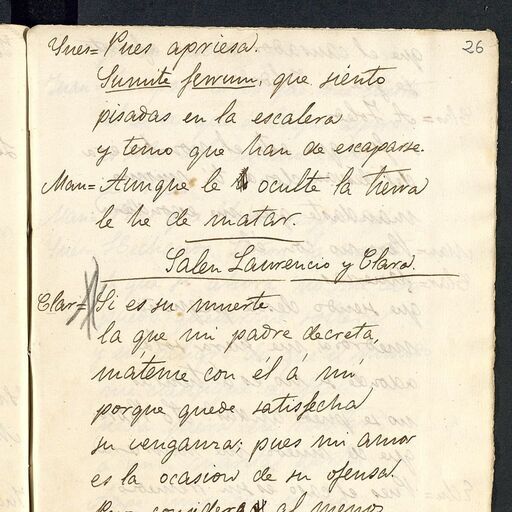 26
Ynes= Pues apriesa.
Sumite ferrum, que siento
pisadas en la escalera
y temo que han de escaparse.
Man= Aunque le oculte la tierra
le he de matar.
Salen Laurencio y Clara.
Clar= Si es su muerte
la que mi padre decreta,
máteme con él á mí
porque quede satisfecha
su venganza; pues mi amor
es la ocasion de su ofensa.
al menos